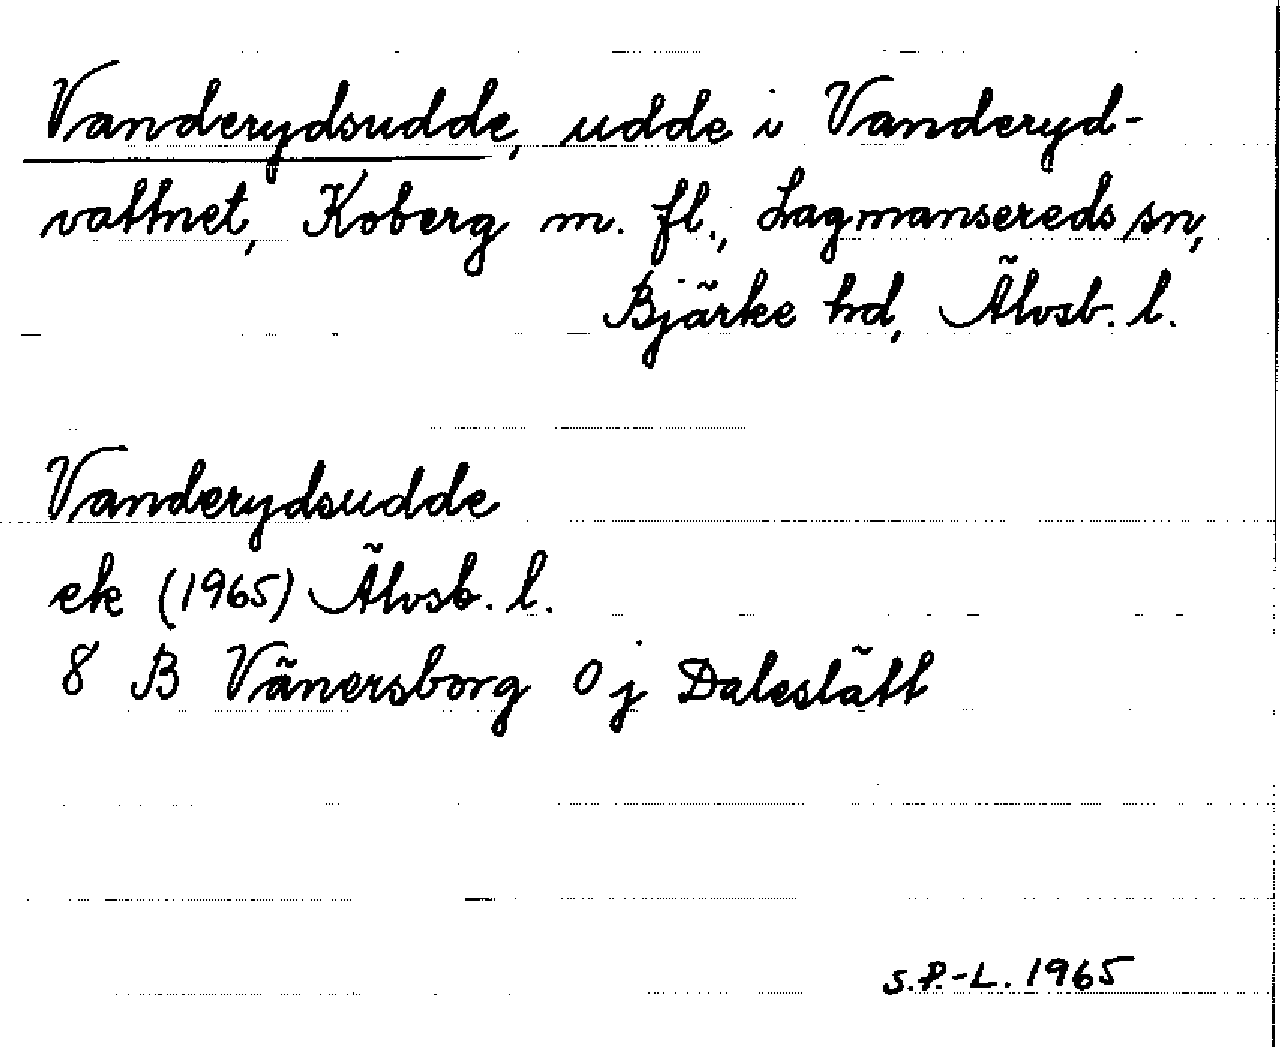 Vanderydsudde, udde i Vanderyd-
vattnet, Koberg m. fl., Lagmansereds sn,
Bjärke hd, Älvsb. l.
Vanderydsudde
ek (1965) Älvsb. l.
8 B Vänersborg 0 j Daleslätt
S.P.-L. 1965